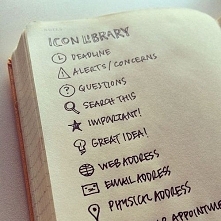 ICON LIBRARY
DEADLINE
ALERTS/CONCERNS
QUESTIONS
SEARCH THIS
IMPORTANT!
GREAT IDEA!
WEB ADDRESS
EMAIL ADDRESS
PHYSICAL ADDRESS